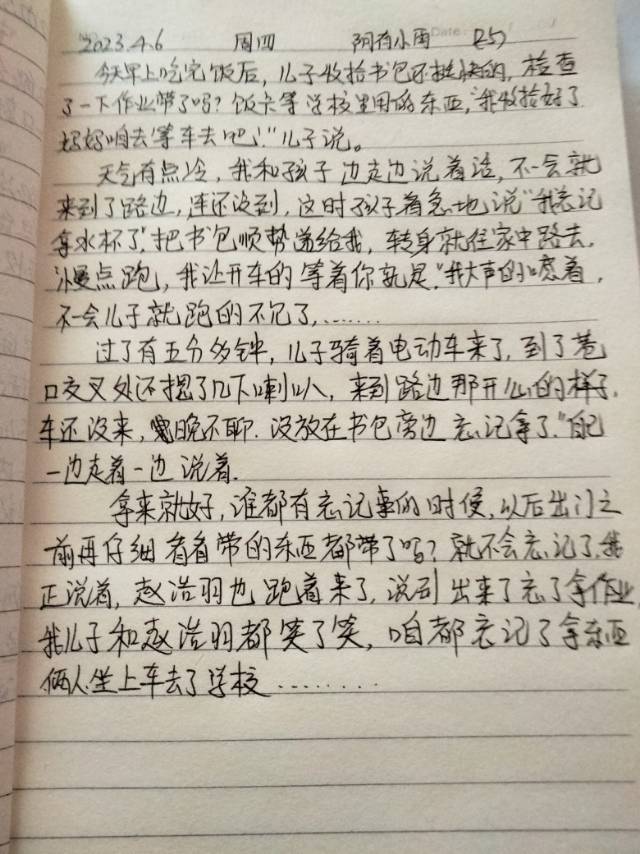 2023.4.6 周四 阴有小雨 (25)
今天早上吃完饭后，儿子收拾书包还挺快的，检查
了一下作业带了吗？饭卡等学校里用的东西，“我收拾好了
妈妈咱去等车去吧！”儿子说。
天气有点冷，我和孩子边走边说着话，不一会就
来到了路边，车还没到，这时孩子着急地说“我忘记
拿水杯了”，把书包顺势递给我，转身就往家中路去，
“慢点跑，我让开车的等着你就是”我大声的喊着，
不一会儿子就跑的不见了，……
过了有五分多钟，儿子骑着电动车来了，到了巷
口交叉处还摁了几下喇叭，来到路边那开心的样子，
车还没来，晚不聊．没放在书包旁边忘记拿了．”自己
一边走着一边说着．
拿来就好，谁都有忘记事的时候，以后出门之
前再仔细看看带的东西都带了吗？就不会忘记了，我
正说着，赵浩羽也跑着来了，说到出来了忘了拿作业，
我儿子和赵浩羽都笑了笑，咱都忘记了拿东西
俩人坐上车去了学校………